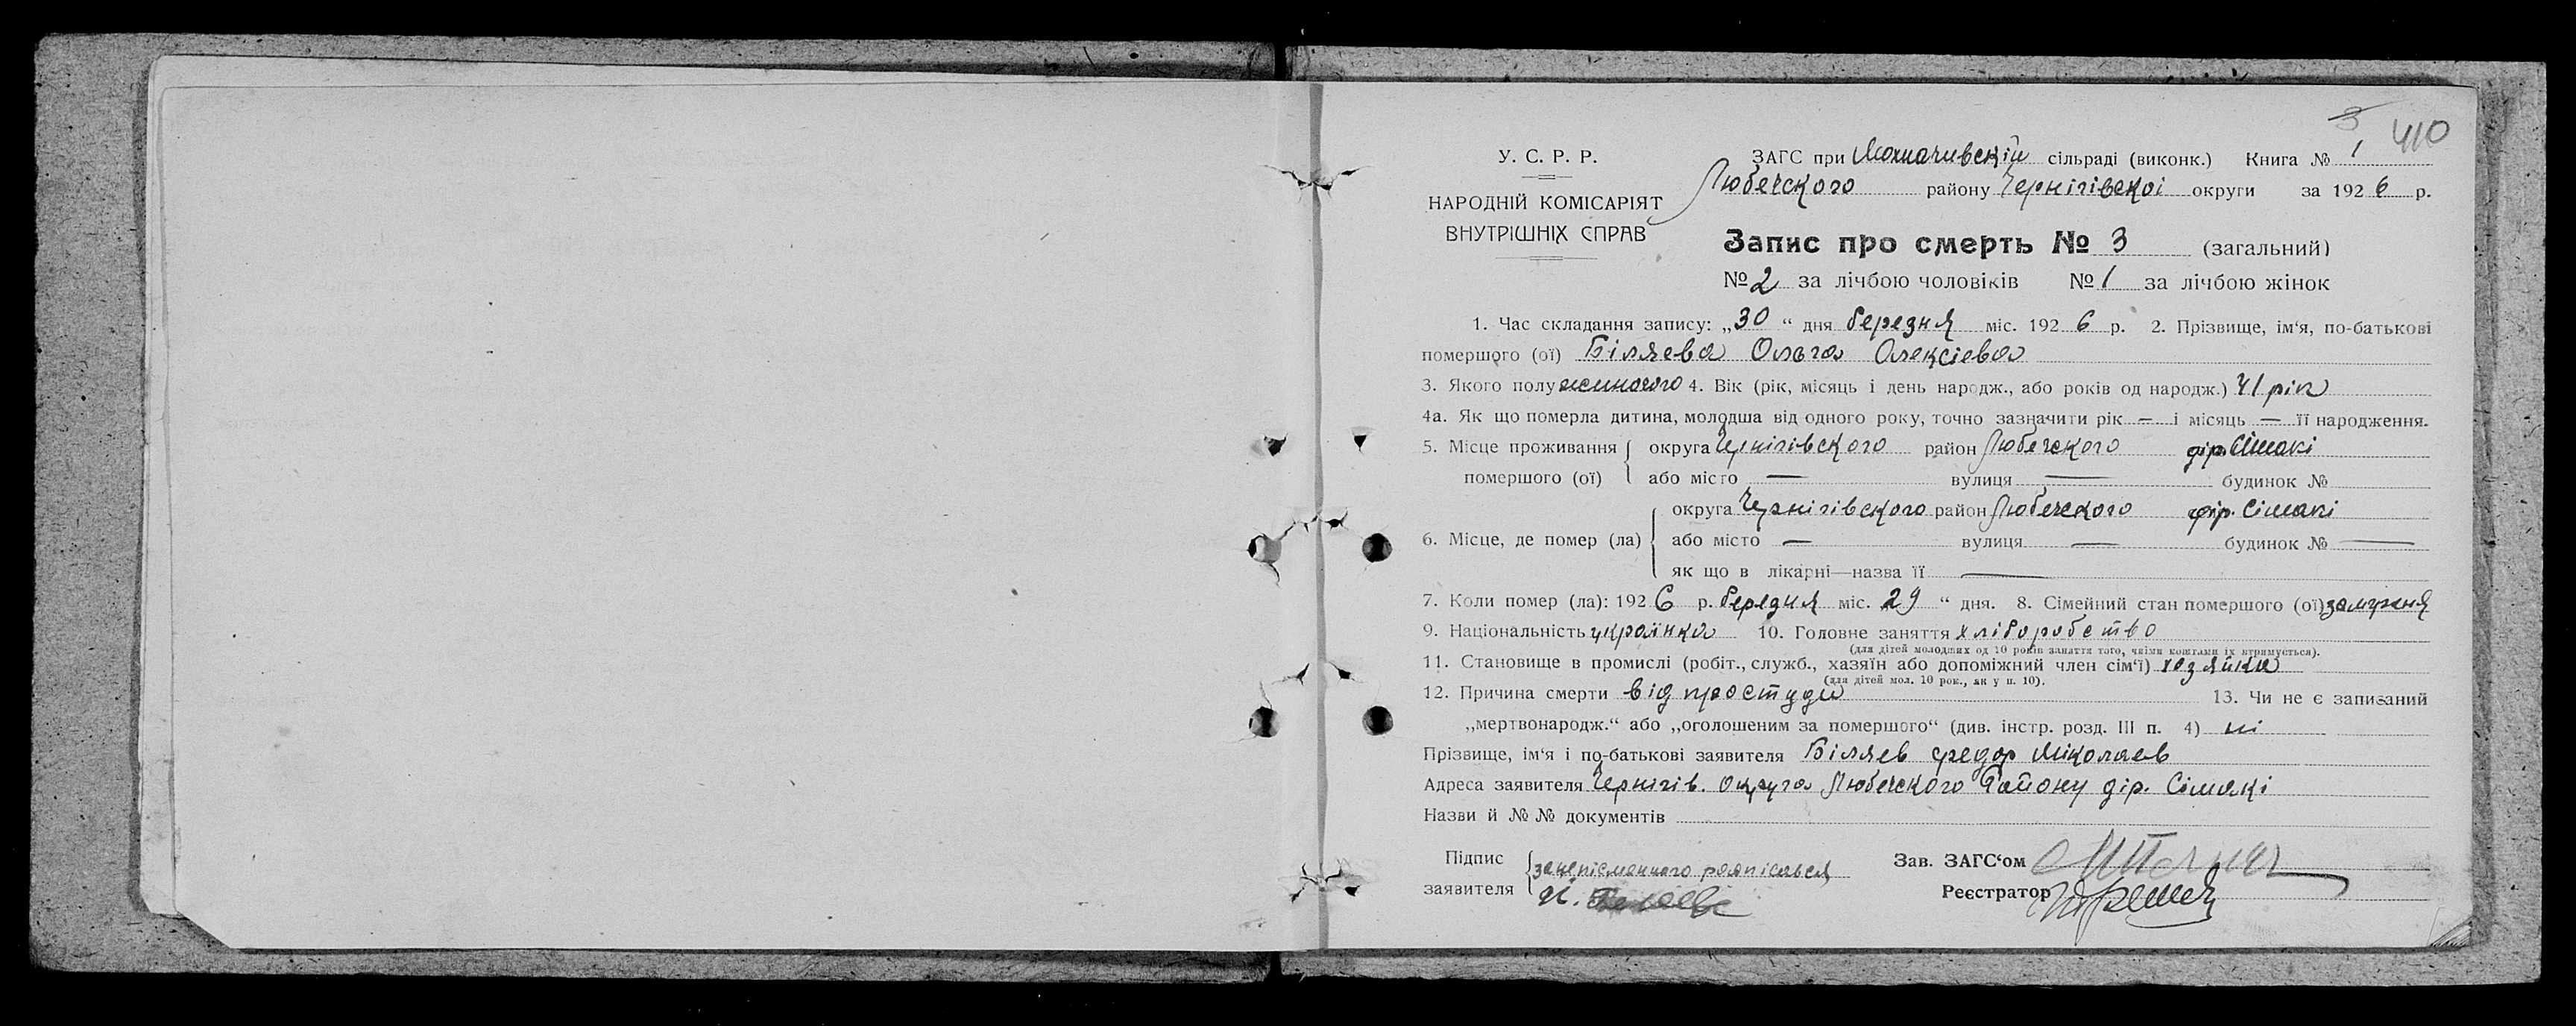 3 410
У. С. Р. Р.
НАРОДНІЙ КОМІСАРІЯТ
ВНУТРІШНІХ СПРАВ
ЗАГС при сільраді (виконк.) Книга № 1
Любечского району Чернігівскоі округи за 1926 р.
Запис про смерть № 3 (загальний)
№ 2 за лічбою чоловіків № 1 за лічбою жінок
1. Час складання запису: „30“ дня березня міс. 1926 р. 2. Прізвище, ім‘я, по-батькові
помершого (ої) Біляева Ольга Олексіева
3. Якого полу жиночого 4. Вік (рік, місяць і день народж., або років од народж.) 41 рік
4а. Як що померла дитина, молодша від одного року, точно зазначити рік — і місяць — її народження.
5. Місце проживання округа Чернігівского район Любечского дір. Сімакі
помершого (ої) або місто — вулиця — будинок №
округа Чернігівского район Любечского дір. Сімакі
6. Місце, де помер (ла) або місто — вулиця — будинок № —
як що в лікарні—назва її —
7. Коли помер (ла): 1926 р. березня міс. 29 “ дня. 8. Сімейний стан помершого (ої) замужня
9. Національність українка 10. Головне заняття хліборобство
(для дітей молодших од 10 років заняття того, чиїми коштами їх втримується).
11. Становище в промислі (робіт., служб., хазяїн або допоміжний член сім‘ї) хозяйка
(для дітей мол. 10 рок., як у п. 10).
12. Причина смерти від простуди 13. Чи не є записаний
„мертвонародж.“ або „оголошеним за помершого“ (див. інстр. розд. III п. 4) ні
Прізвище, ім‘я і по-батькові заявителя Біляев Федор Міколаев
Адреса заявителя Чернігів. округа Любечского Району дір. Сімакі
Назви й №№ документів
Підпис
заявителя
занепісменного роспісався
Зав. ЗАГС‘ом
Реєстратор